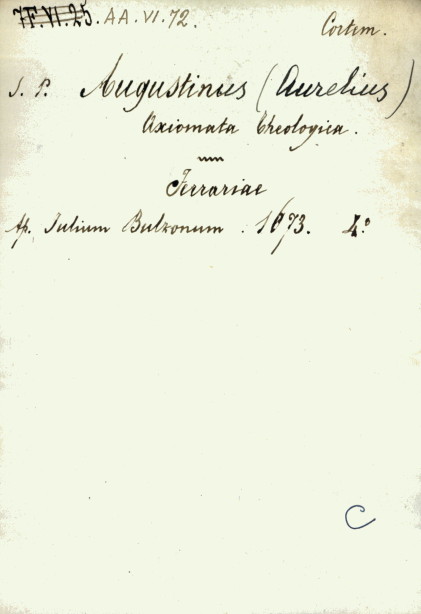 7F.VI.25. AA.VI.72. Contin.
S. P. Augustinus (Aurelius)
Axiomata theologica.
Ferrariae
Ap. Iulium Bulzonum. 1673. 4.º
C